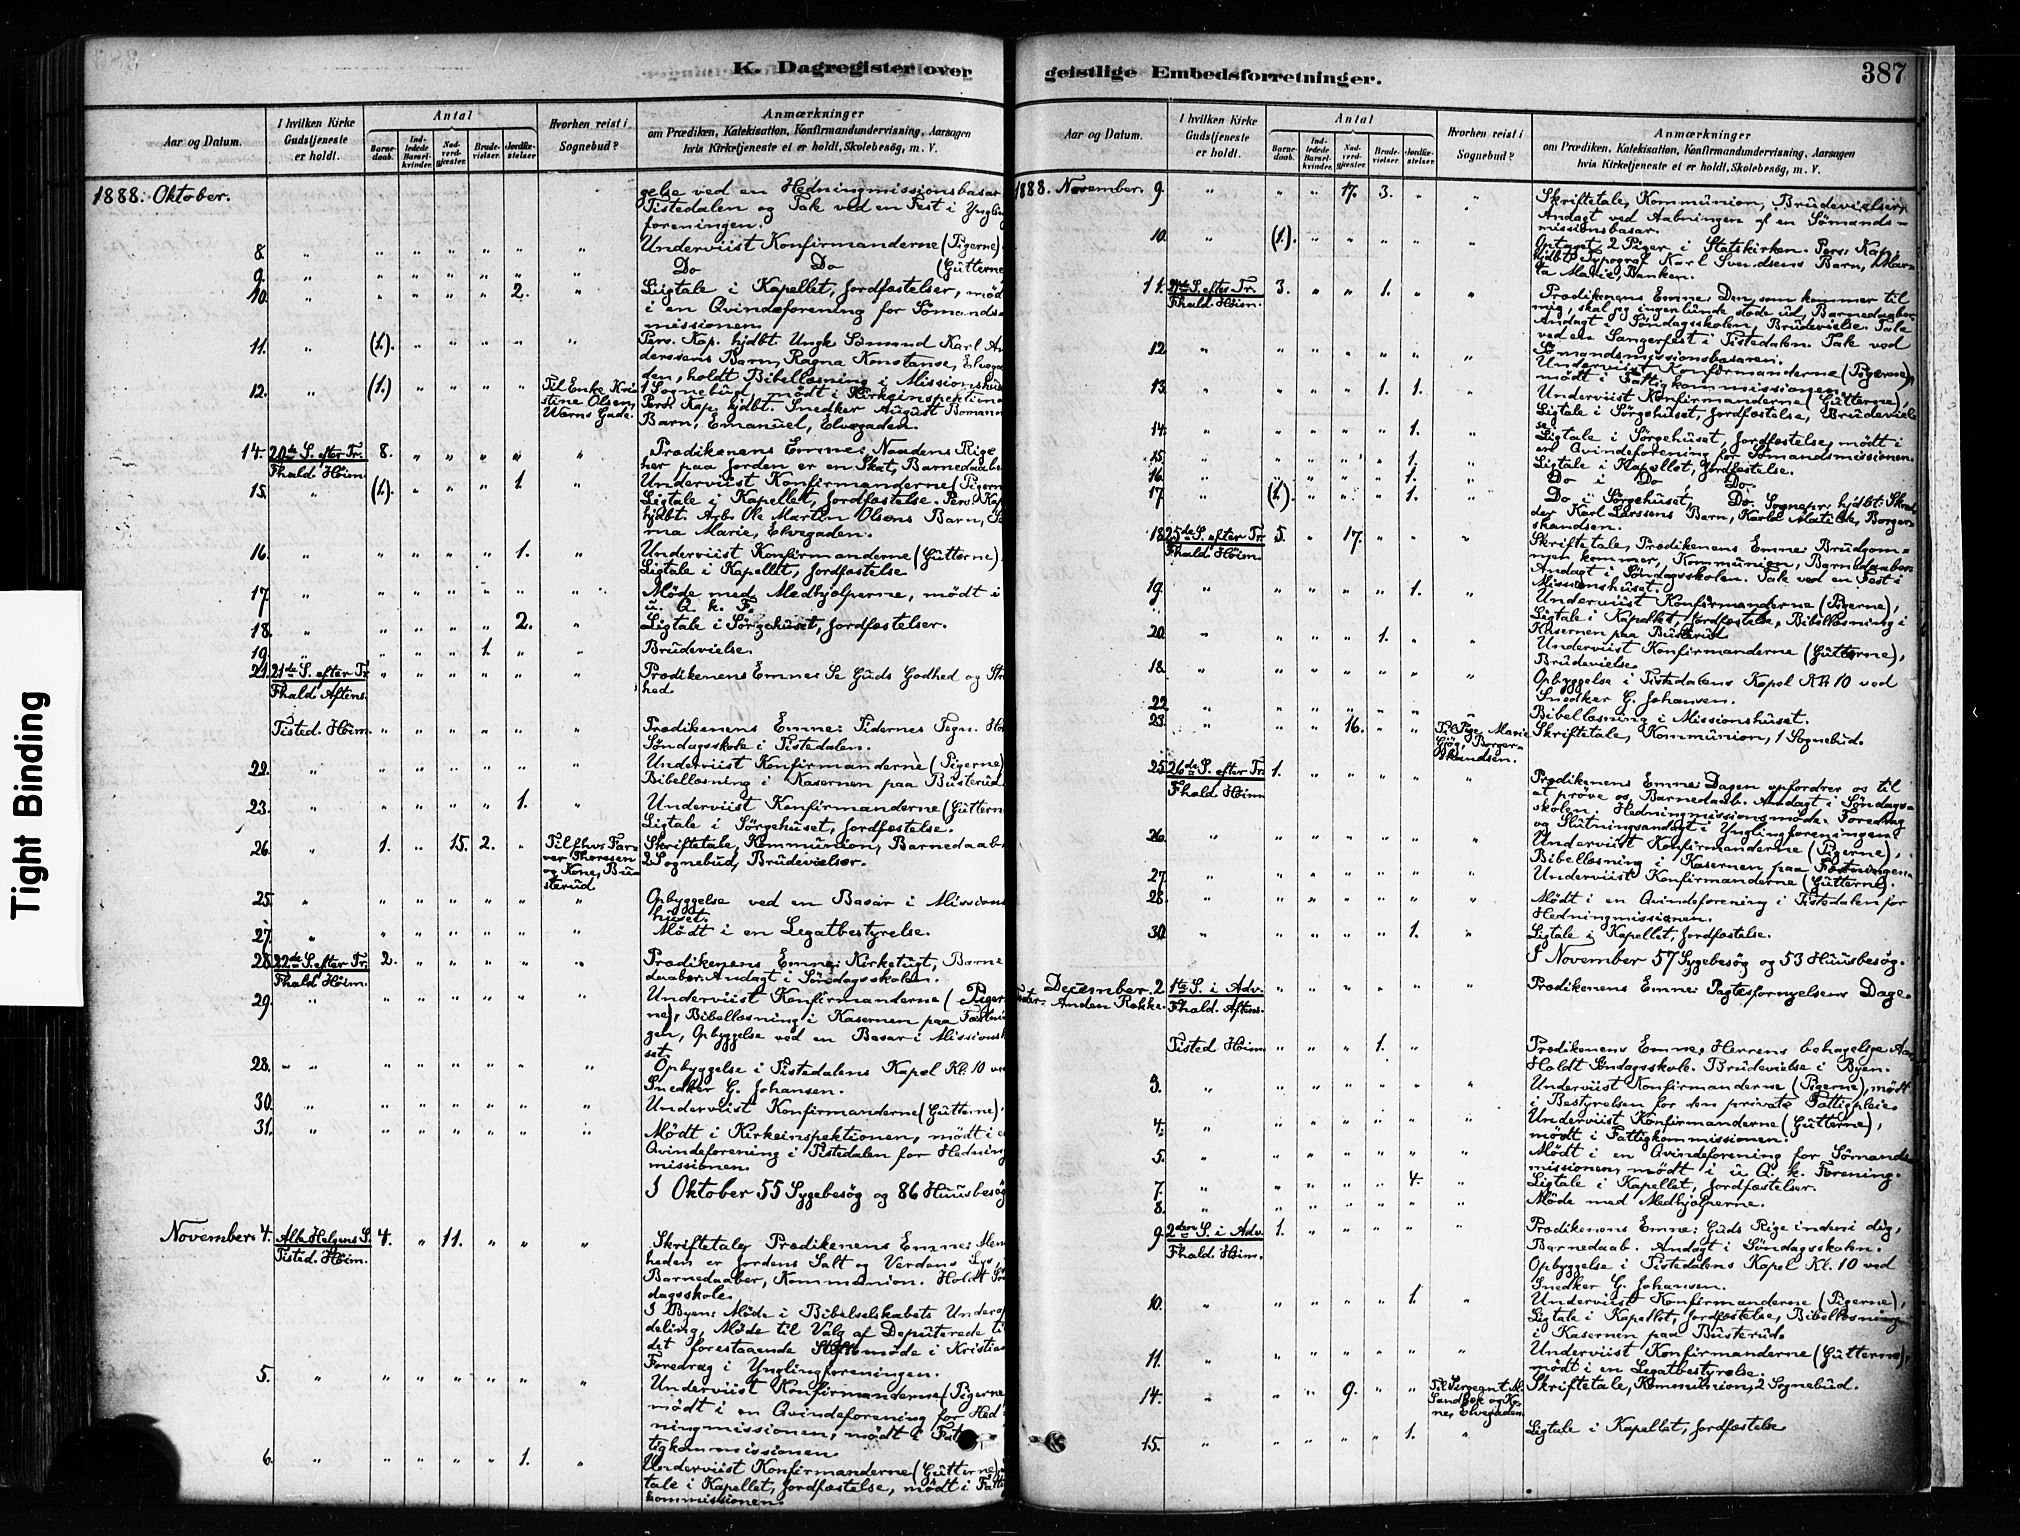 Tight Binding
K. Dagregister over
Aar og Datum.
I hvilken Kirke Gudstjeneste er holdt.
Antal
Barnedaab.
Indledede Barselkvinder.
Nadverdgjæster.
Brudevielser.
Jordfæstelser.
Hvorhen reist i Sognebud?
Anmærkninger
om Prædiken, Katekisation, Konfirmandundervisning, Aarsagen
hvis Kirketjeneste ei er holdt, Skolebesøg, m. V.
1888. Oktober.
gelse ved en Hedningmissionsbasar
Tistedalen og Tak ved en Fest i Yngling
foreningen.
8. Underviist Konfirmanderne (Pigerne)
9. Do Do (Gutterne
10. 2. Ligtale i Kapellet, Jordfæstelser, mødt
i en Qvindeforening for Sømands
missionen.
11. (1.) Pers. Kap. hjdbt. Ungk. Sømand Karl An
derssens Barn, Ragna Konstanse, Elvega
den, holdt Bibellæsning i Missionshuset
12. (1.) Til Enke Kri
stine Olsen,
Werns Gade.
1 Sognebud, mødt i Kirkeinspektionen
Pers. Kap. hjdbt. Snedker August Bomann
Barn, Emanuel, Elvegaden.
14. 20de S. efter Tr. 8. Prædikenens Emne: Naadens Rige
Fhald Høim. her paa Jorden er en Skat, Barnedaaber
15. (1.) 1. Underviist Konfirmanderne (Pigerne
Ligtale i Kapellet, Jordfæstelse. Pers. Kap
hjdbt. Arb. Ole Martin Olsens Barn,
ma Marie, Elvegaden.
16. 1. Underviist Konfirmanderne (Gutterne).
Ligtale i Kapellet, Jordfæstelse
17. Møde med Medhjælperne, mødt i
u. Q. k. F.
18. 2. Ligtale i Sørgehuset, Jordfæstelser.
19. 1. Brudevielse.
21. 21de S. efter Tr. Prædikenens Emne: Se Guds Godhed og Stre
Fhald Aftens. hed.
Tisted. Høim. Prædikenens Emne: Tidernes Tegn.
Søndagsskole i Tistedalen.
22. Underviist Konfirmanderne (Pigerne)
Bibellæsning i Kasernen paa Busterud
23. 1. Underviist Konfirmanderne (Gutterne
Ligtale i Sørgehuset, Jordfæstelse.
26. 1. 15. 2. Til fhv. Far
ver Thoresen
og Kone, Bu
sterud
Skriftetale, Kommunion, Barnedaab
2 Sognebud, Brudevielser.
25. Opbyggelse ved en Basar i Missions
huset.
27. Mødt i en Legatbestyrelse.
28. 22de S. efter Tr. 2. Prædikenens Emne: Kirketugt, Barne
Fhald Høim. daaber. Andagt i Søndagsskolen.
29. Underviist Konfirmanderne (Piger
ne), Bibellæsning i Kasernen paa Fæstnin
gen, Opbyggelse ved en Basar i Missionsh
set.
28. Opbyggelse i Tistedalens Kapel Kl. 10 ved
Snedker G. Johansen.
30. Underviist Konfirmanderne (Gutterne).
31. Mødt i Kirkeinspektionen, mødt i e
Qvindeforening i Tistedalen for Hedning
missionen.
I Oktober 55 Sygebesøg og 86 Huusbesøg
November 4. Alle Helgens S. 4. 11. Skriftetale, Prædikenens Emne: Men
Tisted. Høim. heden er Jordens Salt og Verdens Lys,
Barnedaaber, Kommunion. Holdt Søn
dagsskole.
I Byen: Møde i Bibelselskabets Underaf
deling, Møde til Valg af Deputerede ti
det forestaaende Stiftsmøde i Kristian
Foredrag i Ynglingforeningen.
5. Underviist Konfirmanderne (Pigerne
mødt i en Qvindeforening for Hed
ningmissionen, mødt i Fat
tigkommissionen.
6. 1. Underviist Konfirmanderne (Gutterne)
tale i Kapellet, Jordfæstelse, mødt i Fatti
kommissionen.
geistlige Embedsforretninger.
387
Aar og Datum.
I hvilken Kirke Gudstjeneste er holdt.
Antal
Barnedaab.
Indledede Barselkvinder.
Nadverdgjæster.
Brudevielser.
Jordfæstelser.
Hvorhen reist i Sognebud?
Anmærkninger
om Prædiken, Katekisation, Konfirmandundervisning, Aarsagen
hvis Kirketjeneste ei er holdt, Skolebesøg, m. V.
1888. November. 9. 17. 3. Skriftetale, Kommunion, Brudevielser,
Andagt ved Aabningen af en Sømands-
missionsbasar.
10. (1.) Optaget 2 Piger i Statskirken. Pers. Kap.
hjdbt. Typograf Karl Svendsens Barn, Mar
ta Marie, Banken.
11. 24de S. efter Tr. 3. 1. Prædikenens Emne: Den, som kommer til
Fhald. Høim. mig, skal jeg ingenlunde støde ud, Barnedaaber
Andagt i Søndagsskolen, Brudevielse. Tale
ved en Sangerfest i Tistedalen. Tak ved
Sømandsmissionsbasaren.
12. Underviist Konfirmanderne (Pigerne),
mødt i Fattigkommissionen.
13. 1. 1. Underviist Konfirmanderne (Gutterne),
Ligtale i Sørgehuset, Jordfæstelse, Brudeviel
se
14. 1. Ligtale i Sørgehuset, Jordfæstelse, mødt i
en Qvindeforening for Sømandsmissionen.
15. 1. Ligtale i Kapellet, Jordfæstelse.
16. 1. Do i Do Do.
17. (1.) 1. Do i Sørgehuset, Do. Sognepr. hjdbt. Skræd
der Karl Larssens Barn, Karla Matilde, Borger-
skandsen.
18. 25de S. efter Tr. 5. 17. Skriftetale, Prædikenens Emne: Brudgom-
Fhald Høim. men kommer, Kommunion, Barnedaaber.
Andagt i Søndagsskolen. Tak ved en Fest i
Missionshuset.
19. 1. Underviist Konfirmanderne (Pigerne),
Ligtale i Kapellet, Jordfæstelse, Bibellæsning i
Kasernen paa Busterud
20. 1. Underviist Konfirmanderne (Gutterne),
Brudevielse.
18. Opbyggelse i Tistedalens Kapel Kl. 10 ved
Snedker G. Johansen.
22. Bibellæsning i Missionshuset.
23. 16. Til Pige Marie
Borger-
skandsen.
Skriftetale, Kommunion, 1 Sognebud.
25. 26de S. efter Tr. 1. Prædikenens Emne: Dagen opfordrer os til
Fhald Høim. at prøve os, Barnedaab. Andagt i Søndags-
skolen. Hedningmissionsmøde. Foredrag
og Slutningsandagt i Ynglingforeningen.
26. Underviist Konfirmanderne (Pigerne),
Bibellæsning i Kasernen paa Fæstningen.
27. Underviist Konfirmanderne (Gutterne).
28. Mødt i en Qvindeforening i Tistedalen for
Hedningmissionen.
30. 1. Ligtale i Kapellet, Jordfæstelse.
I November 57 Sygebesøg og 53 Huusbesøg.
December. 2. 1ste S. i Adv. Prædikenens Emne: Pagtsfornyelsens Dage.
Anden Række. Fhald. Aftens.
Tisted Høim. 1. Prædikenens Emne: Herrens behagelige Aar
Holdt Søndagsskole. Brudevielse i Byen.
3. Underviist Konfirmanderne (Pigerne), mødt
i Bestyrelsen for den private Fattigpleie.
4. Underviist Konfirmanderne (Gutterne),
mødt i Fattigkommissionen.
5. Mødt i en Qvindeforening for Sømands
missionen, mødt i u. Q. k. Forening.
7. 4. Ligtale i Kapellet, Jordfæstelser.
8. Møde med Medhjælperne.
9. 2den S. i Adv. 1. Prædikenens Emne: Guds Rige indeni dig,
Fhald. Høim. Barnedaab. Andagt i Søndagsskolen.
Opbyggelse i Tistedalens Kapel Kl. 10 ved
Snedker G. Johansen.
10. 1. Underviist Konfirmanderne (Pigerne),
Ligtale i Kapellet, Jordfæstelse, Bibellæsning
i Kasernen paa Busterud.
11. Underviist Konfirmanderne (Gutterne),
mødt i en Legatbestyrelse.
14. 9. Til Sergeant M.
Sandbæk og Ko
ne, Elvegaden.
Skriftetale, Kommunion, 2 Sognebud.
15. 1. Ligtale i Kapellet, Jordfæstelse